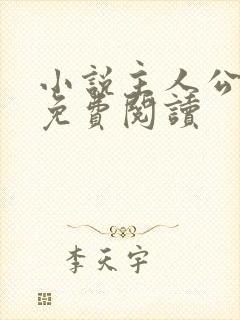 小說主人公
免費閱讀
李天宇